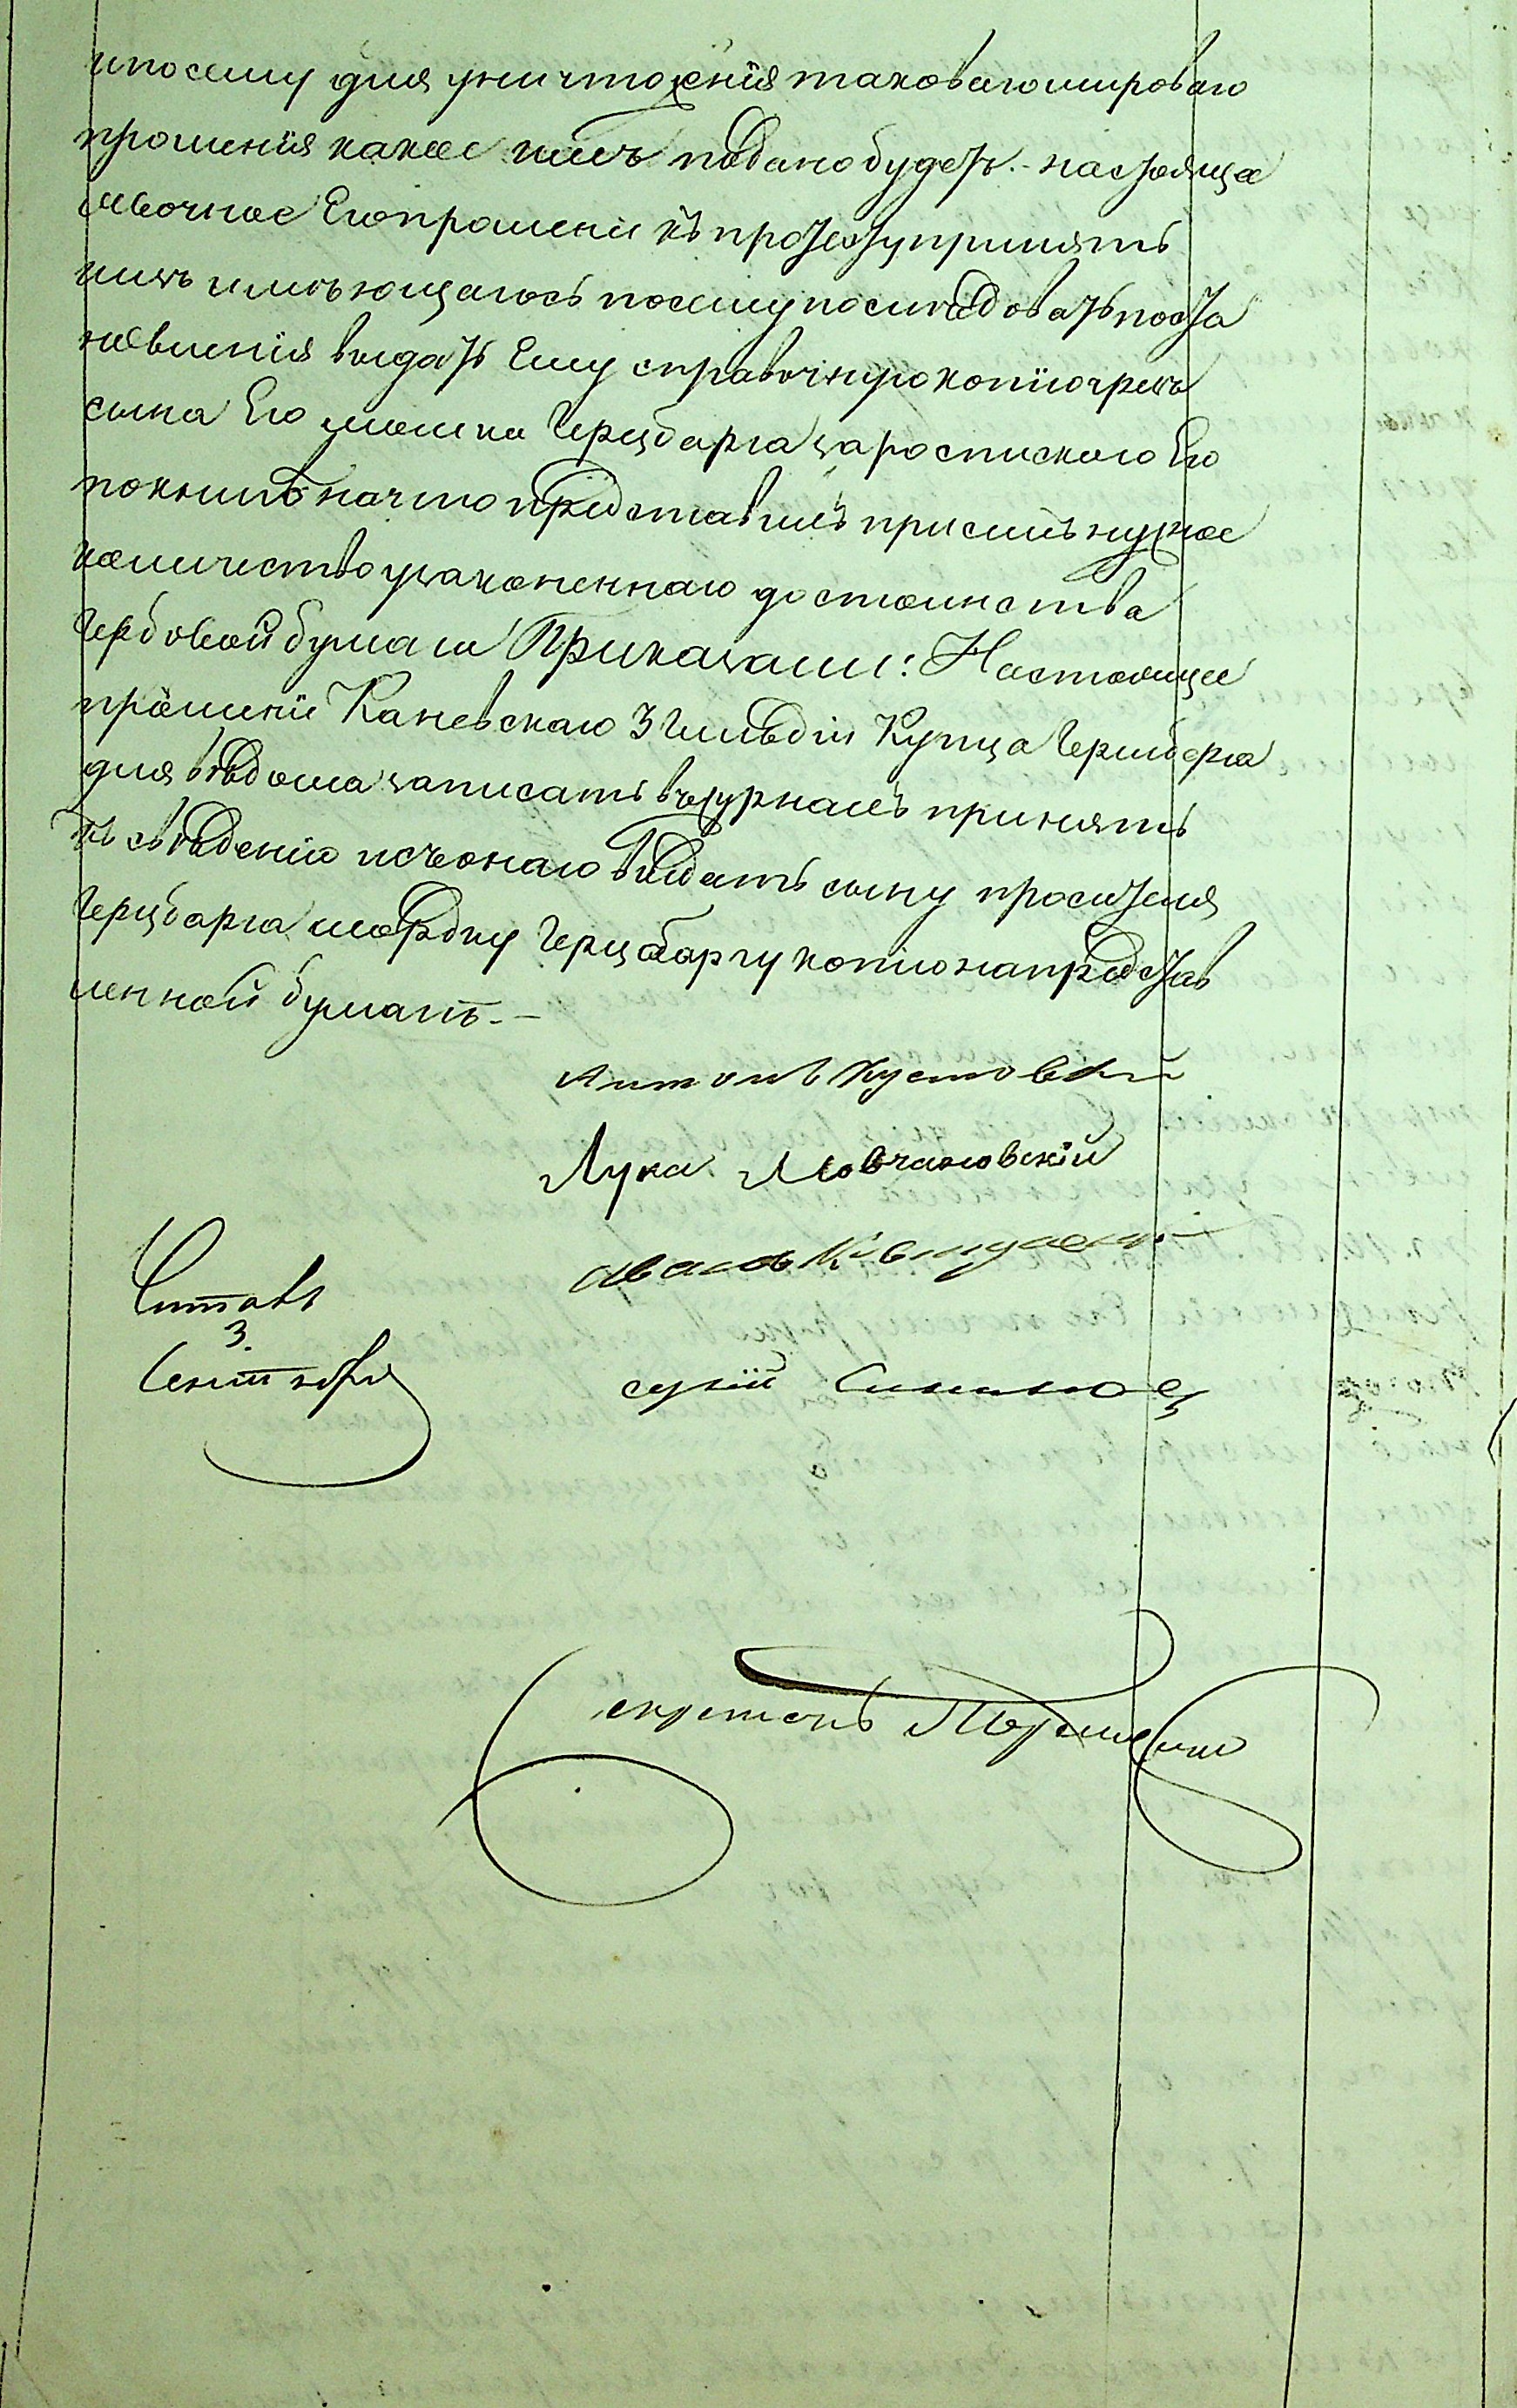 и посему для уничтоженія таковаго мироваго
прошенія какое имъ подано будетъ. - настояще
явочное Его прошеніе къ протесту принять
и изъ имѣющагося посему последовать поста
новленія выдать Ему справочную копію чрезъ
сына Его Мошка Герцбарга за роспискою Его
по книгѣ на что представилъ при семъ нужное
количество узаконеннаго достоинства
гербовой бумаги Приказали: Настоящее
прошеніе Каневскаго 3 гильдіи Купца Герцберга
для вѣдома записать въ журналъ принять
къ свѣденію и съ онаго выдать сыну просителя
Герцбарга Мордку Герцбаргу копію на представ
ленной бумагѣ. -
Антонъ Кустовскій
Лука Мовчановскій
Иванъ
Читалъ
3.
Сентября
сергій
Секретарь